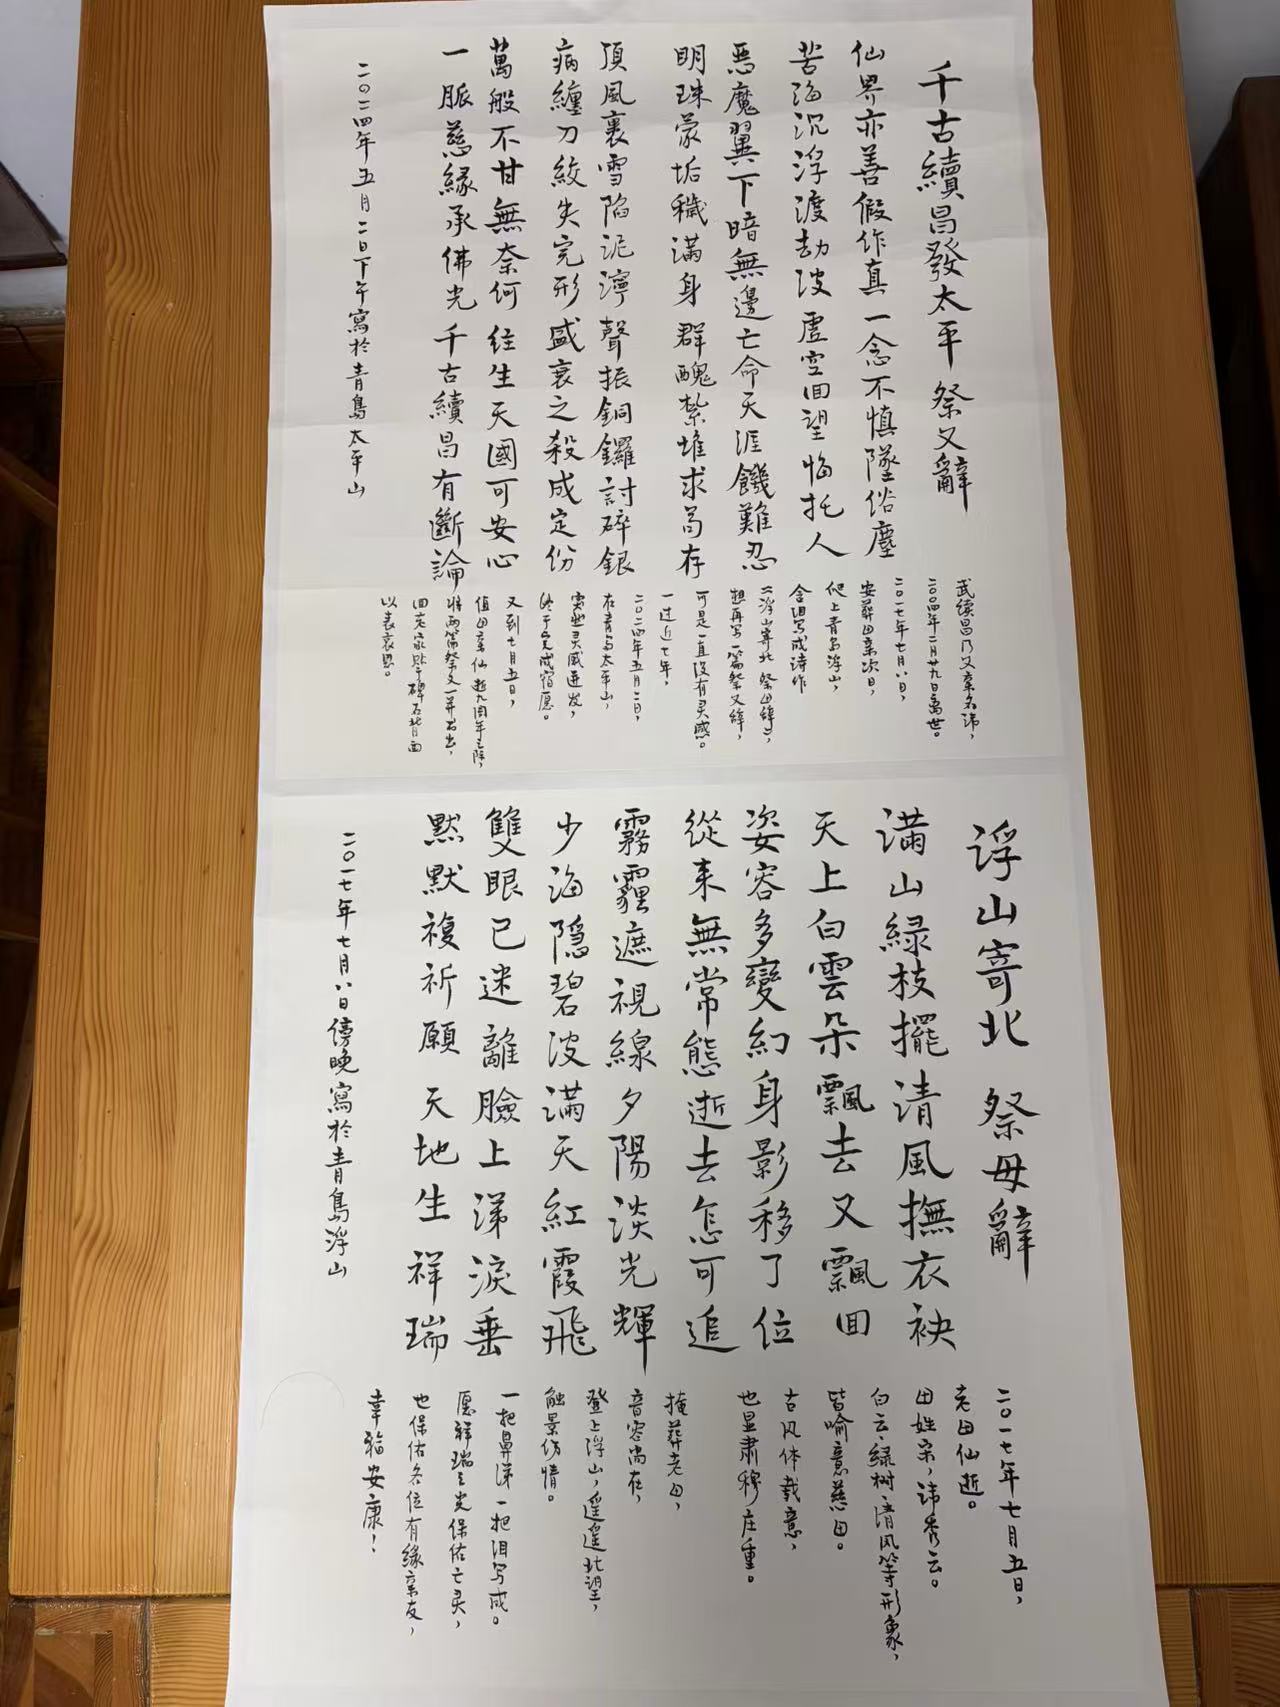 千古續昌發太平 祭父辭
仙界亦善假作真 一念不慎墜俗塵
苦海沉浮渡劫波 虛空回望悔托人
惡魔翼下暗無邊 亡命天涯饑難忍
明珠蒙垢穢滿身 群醜紮堆求苟存
頂風裹雪陷泥濘 聲振銅鑼討碎銀
病纏刀絞失完形 盛衰之殺成定份
萬般不甘無奈何 往生天國可安心
一脈慈緣承佛光 千古續昌有斷論
二〇二四年五月二日下午寫於青島太平山
武续昌乃父亲名讳，
二〇〇四年二月廿九日离世。
二〇一七年七月八日，
安葬母亲次日，
爬上青岛浮山，
含泪写成诗作
《浮山寄北 祭母辞》，
想再写一篇祭父辞，
可是一直没有灵感。
一过近七年，
二〇二四年五月二日，
在青岛太平山，
突然灵感迸发，
终于完成宿愿。
又到七月五日，
值母亲仙逝九周年之际，
将两篇祭文一并书出，
回老家贴于碑石背面
以表哀思。
浮山寄北 祭母辭
滿山綠枝擺 清風撫衣袂
天上白雲朵 飄去又飄回
姿容多變幻 身影移了位
從來無常態 逝去怎可追
霧霾遮視線 夕陽淡光輝
少海隱碧波 滿天紅霞飛
雙眼已迷離 臉上涕淚垂
默默複祈願 天地生祥瑞
二〇一七年七月八日傍晚寫於青島浮山
二〇一七年七月五日，
老母仙逝。
母姓宋，讳秀云。
白云、绿树、清风等形象，
皆喻意慈母。
古风体载意，
也显肃穆庄重。
掩葬老母，
音容尚在，
登上浮山，遥遥北望，
触景伤情。
一把鼻涕一把泪写成。
愿祥瑞之光保佑亡灵，
也保佑各位有缘亲友，
幸福安康！